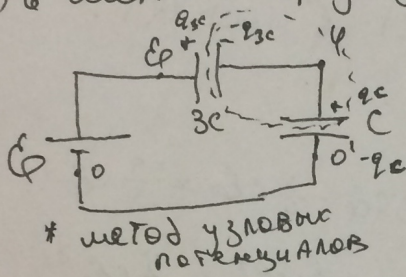 q3c
-q3c
ℰ
+
φ
+ qc
3C
C
ℰ
0
0
-qc
* метод узловых
потенциалов